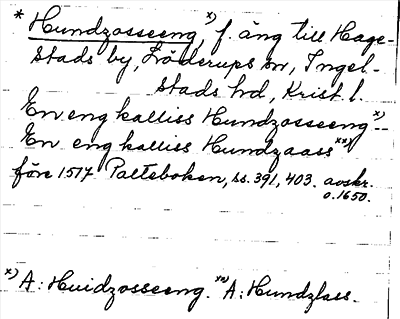 * Hundzosseeng,x) f. äng till Hage-
stads by, Löderups sn, Ingel-
stads hd, Krist l.
En eng kalliss Hundzosseengx)--
En eng kalliss Hundzaassxx)
före 1517 Palteboken, ss. 391, 403. avskr.
o. 1650.
x) A: Huidzosseeng. xx) A: Hundzlass.